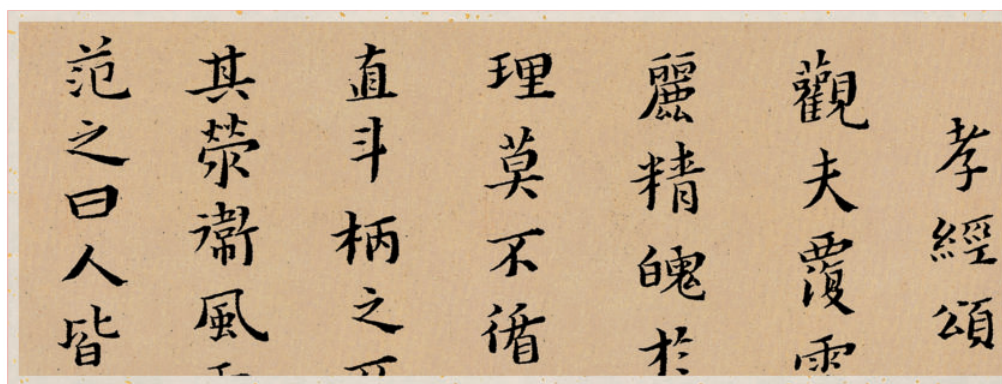 孝經頌
觀夫覆
麗精魄於
理莫不循
直斗柄之
其滎衛風
范之曰人皆